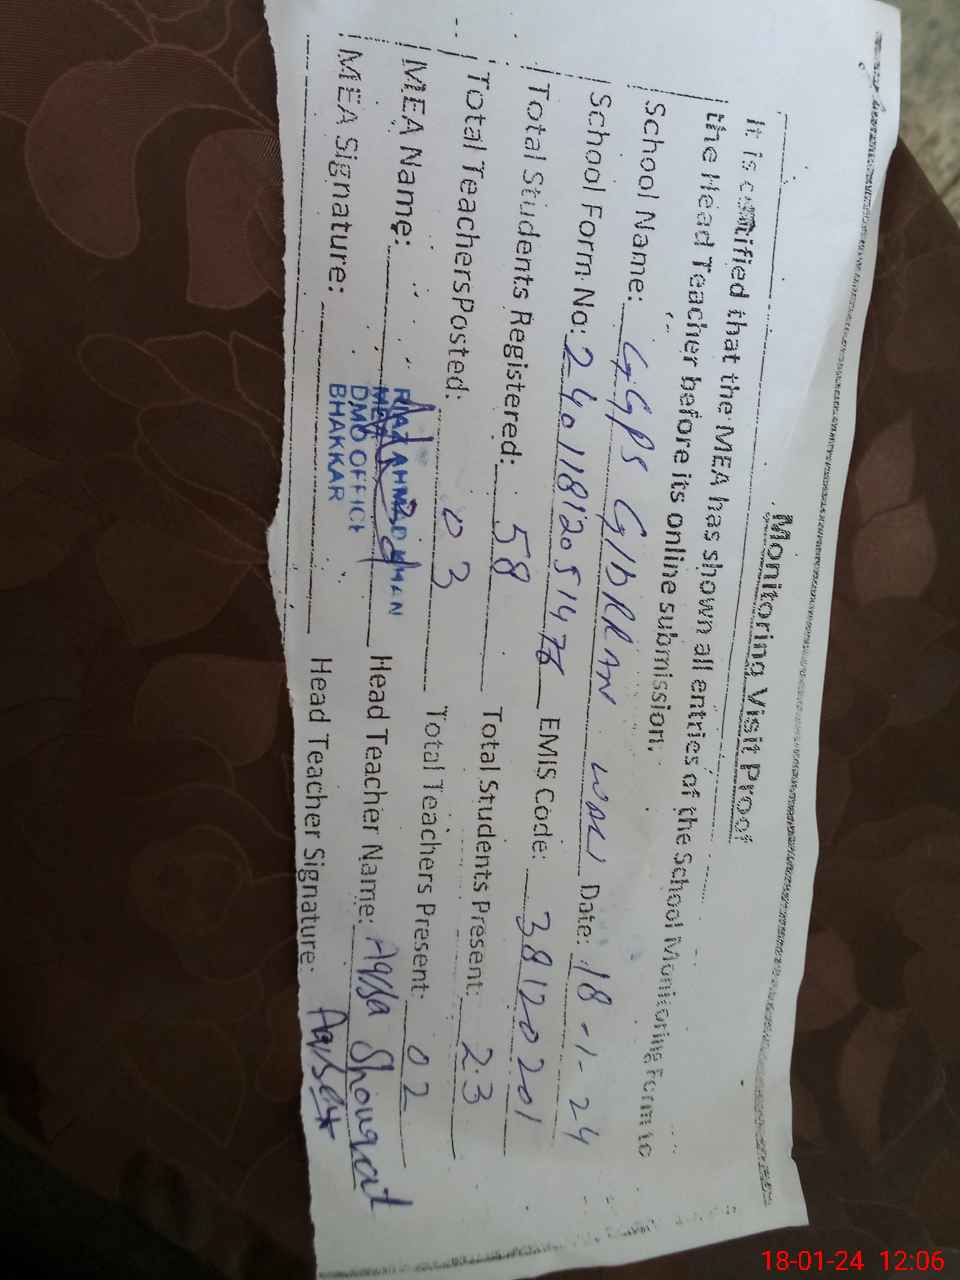 Monitoring Visit Proof
It is certified that the MEA has shown all entries of the School Monitoring Form to
the Head Teacher before its online submission.
School Name: GGPS GIDRRAN WALI Date: 18-1-24
School Form No: 2401181205147 EMIS Code: 38120201
Total Students Registered: 58 Total Students Present: 23
Total TeachersPosted: 03 Total Teachers Present: 02
MEA Name: RIAZ AHMAD KHAN Head Teacher Name: Aqsa Shouqat
MEA
DMO OFFICE
BHAKKAR
MEA Signature: Head Teacher Signature: Aqsa
18-01-24 12:06